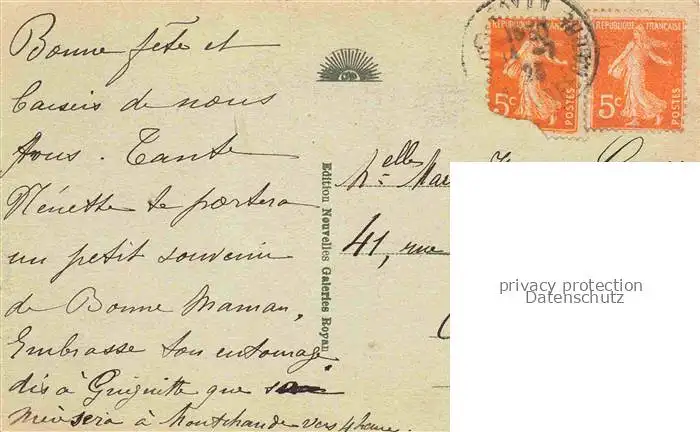 Bonne fête et
baisers de nous
tous. Tante
Nénette te portera
un petit souvenir
de Bonne Maman,
Embrasse ton entourage
dis à Guiguitte que
à vers 4 heures.
Edition Nouvelles Galeries Royan
RÉPUBLIQUE FRANÇAISE
5c
POSTES
RÉPUBLIQUE FRANÇAISE
5c
POSTES
Melle
41, rue
privacy protection
Datenschutz